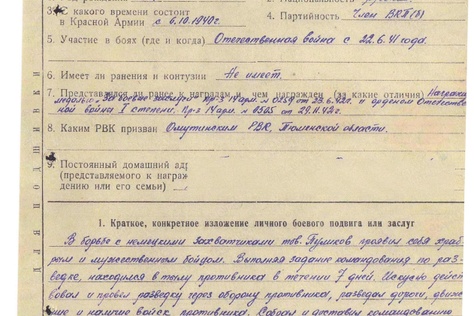 3. С какого времени состоит
в Красной Армии с 6.10.1940г.
4. Партийность Член ВКП(б)
5. Участие в боях (где и когда) Отечественная война с 22.6.41 года.
6. Имеет ли ранения и контузии Не имеет.
7. Представлялся ли ранее к наградам и чем награжден (за какие отличия) Награжден
медалью "За боевые заслуги" пр-з 14 арм. № 0259 от 23.6.42г. и орденом Отечествен
ной война I степени. Пр-з 14 арм. № 0505 от 29.11.42г.
8. Каким РВК призван Омутинским РВК, Тюменской области.
9. Постоянный домашний адр
(представляемого к награж
дению или его семьи)
ДЛЯ ПОДШИВКИ
1. Краткое, конкретное изложение личного боевого подвига или заслуг
В борьбе с немецкими захватчиками тов. Пуликов проявил себя храб
рым и мужественным бойцом. Выполняя задание командования по раз
ведке, находился в тылу противника в течении 7 дней. Искусно дейст
вовал и провёл разведку через оборону противника, разведал дороги, движе
ние и наличие войск противника. Собрал и доставил командованию